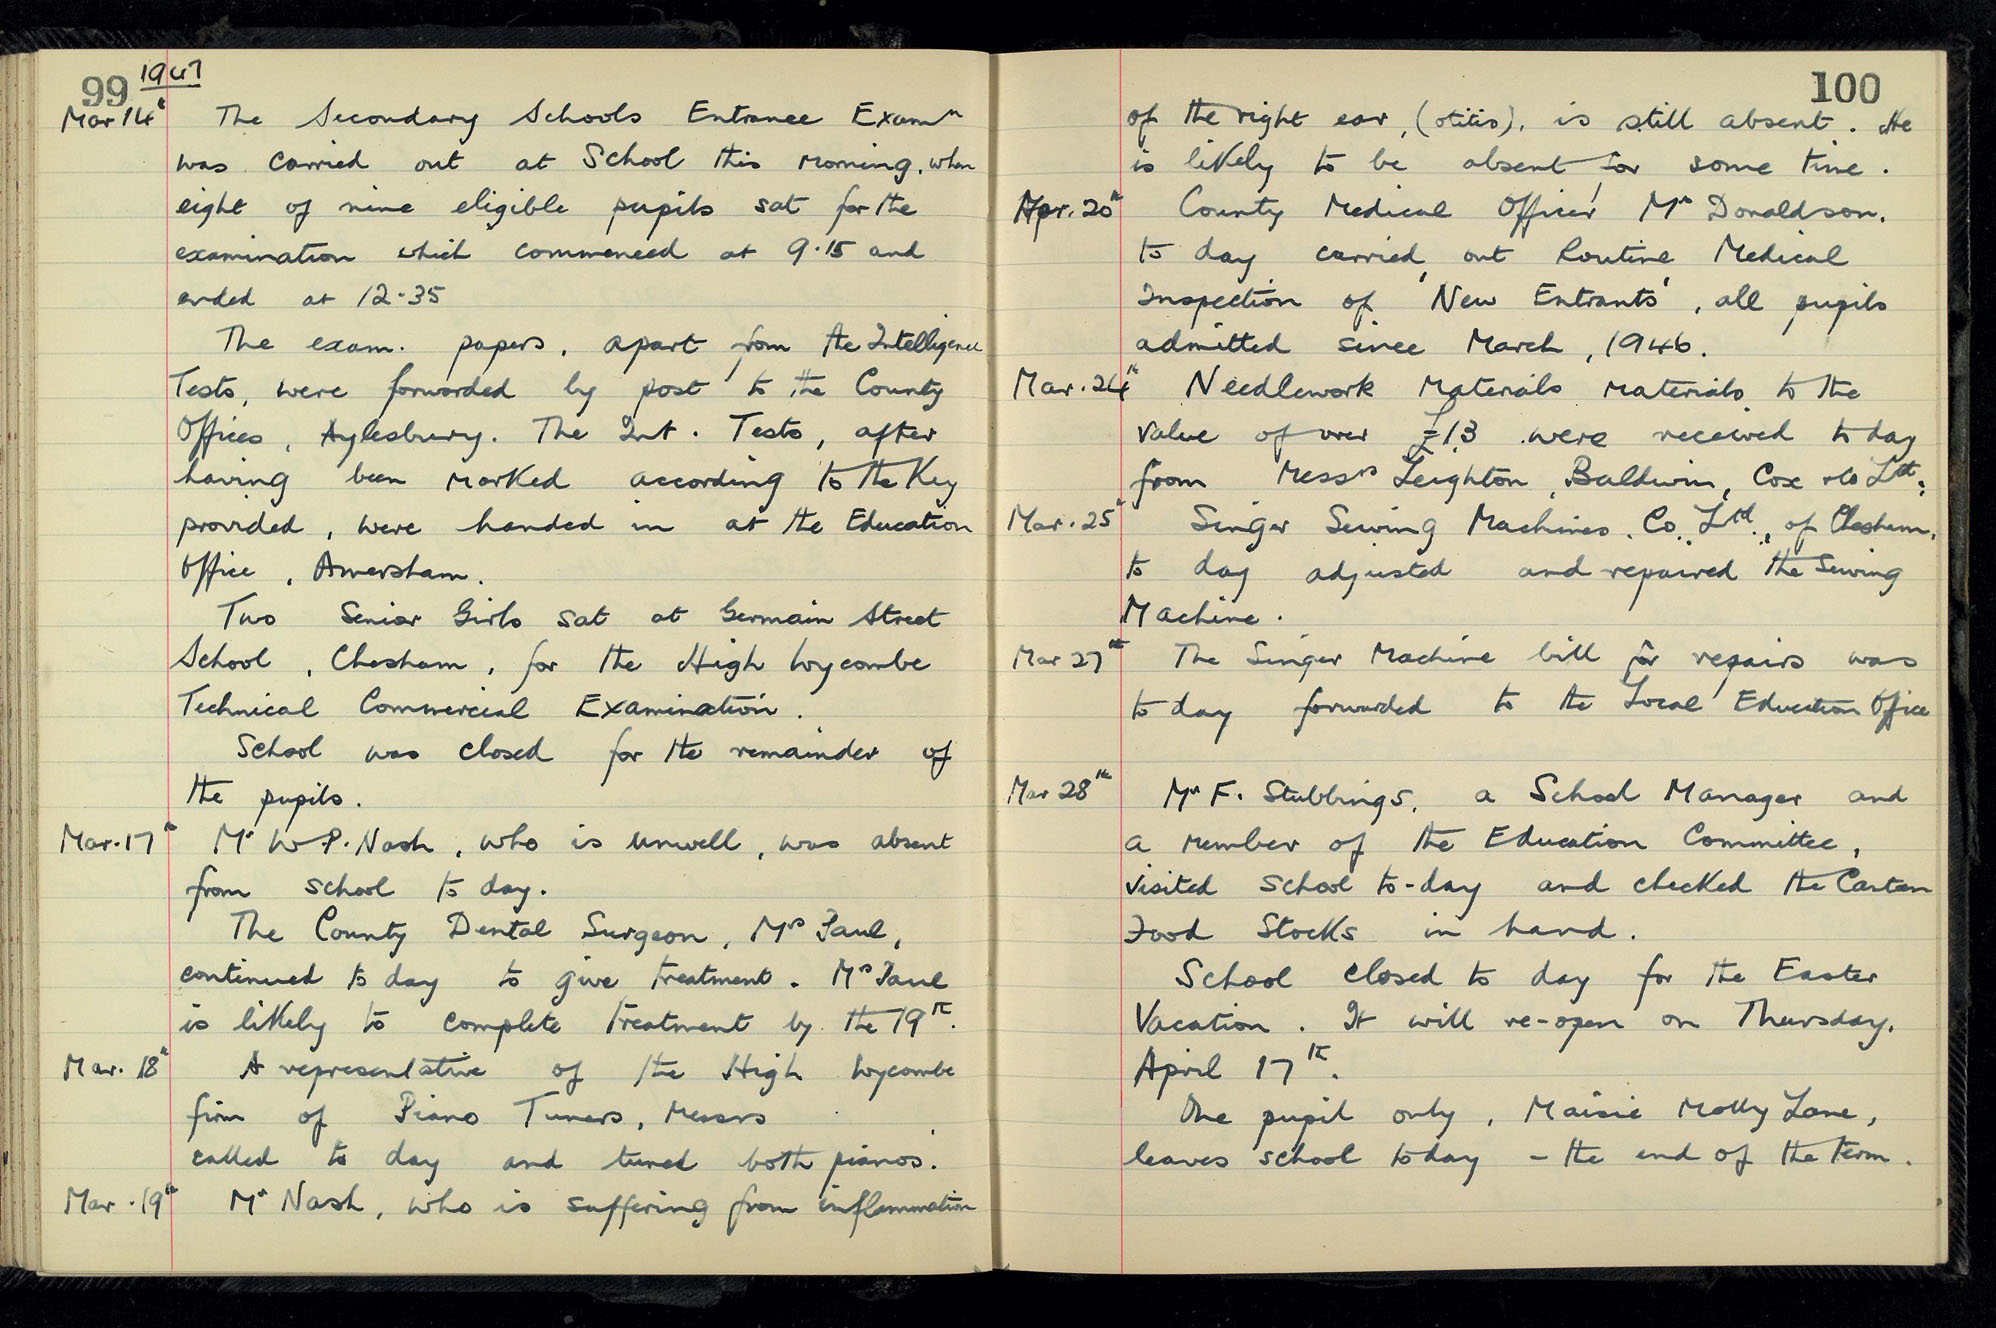 99 1947
Mar 14th The Secondary Schools Entrance Examn
was carried out at School this morning, when
eight of nine eligible pupils sat for the
examination which commenced at 9.15 and
ended at 12.35
The exam. papers, apart from the Intelligence
Tests, were forwarded by post to the County
Offices, Aylesbury. The Int. Tests, after
having been marked according to the Key
provided, were handed in at the Education
Office, Amersham.
Two Senior Girls sat at Germain Street
School, Chesham, for the High Wycombe
Technical Commercial Examination.
School was closed for the remainder of
the pupils.
Mar. 17th Mr W. P. Nash, who is unwell, was absent
from school to day.
The County Dental Surgeon, Mrs Paul,
continued to day to give treatment. Mrs Paul
is likely to complete treatment by the 19th.
Mar. 18th A representative of the High Wycombe
firm of Piano Tuners, Messrs
called to day and tuned both pianos.
Mar. 19th Mr Nash, who is suffering from inflammation
100
of the right ear, (otitis), is still absent. He
is likely to be absent for some time.
Apr. 20th County Medical Officer Mr Donaldson,
to day carried out Routine Medical
Inspection of 'New Entrants', all pupils
admitted since March, 1946.
Mar. 24th Needlework materials materials to the
value of over £13 were received to day
from Messrs Leighton, Baldwin, Cox & Co Ltd.
Mar. 25th Singer Sewing Machines Co. Ltd., of Chesham,
to day adjusted and repaired the Sewing
Machine.
Mar 27th The Singer Machine bill for repairs was
to day forwarded to the Local Education Office
Mar 28th Mr F. Stubbings, a School Manager and
a member of the Education Committee,
visited school to-day and checked the Canteen
Food Stocks in hand.
School closed to day for the Easter
Vacation. It will re-open on Thursday,
April 17th.
One pupil only, Maisie Molly Lane,
leaves school today – the end of the term.